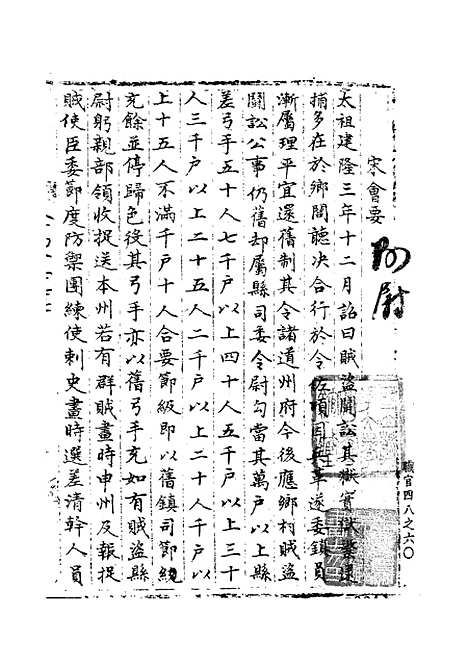 宋會要
尉
太祖建隆三年十二月詔曰賊盜鬭訟其獄實
捕多在於鄉閭聽決合行於令佐頃因兵革遂委鎮員
漸屬理平宜還舊制其令諸道州府今後應鄉村賊盜
鬭訟公事仍舊却屬縣司委令尉勾當其萬戶以上縣
差弓手五十人七千戶以上四十人五千戶以上三十
人三千戶以上二十五人二千戶以上二十人千戶以
上十五人不滿千戶十人合要節級即以舊鎮司節級
充餘並停歸色後其弓手亦以舊弓手充如有賊盜縣
尉躬親部領收捉送本州若有群賊畫時申州及報捉
賊使臣委節度防禦團練使刺史畫時選差清幹人員
職官四八之六〇